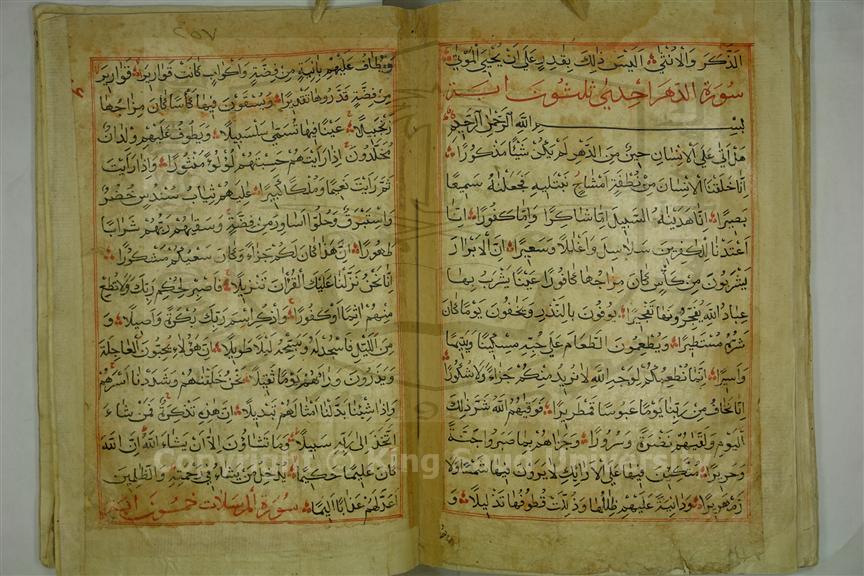 الذَّكَرَ وَالْأُنْثَى أَلَيْسَ ذَلِكَ بِقَادِرٍ عَلَى أَنْ يُحْيِيَ الْمَوْتَى
سورة الدهر احدى ثلثون اية
بسم الله الرحمن الرحيم
هَلْ أَتَى عَلَى الْإِنْسَانِ حِينٌ مِنَ الدَّهْرِ لَمْ يَكُنْ شَيْئًا مَذْكُورًا
إِنَّا خَلَقْنَا الْإِنْسَانَ مِنْ نُطْفَةٍ أَمْشَاجٍ نَبْتَلِيهِ فَجَعَلْنَاهُ سَمِيعًا
بَصِيرًا إِنَّا هَدَيْنَاهُ السَّبِيلَ إِمَّا شَاكِرًا وَإِمَّا كَفُورًا إِنَّا
أَعْتَدْنَا لِلْكَفِرِينَ سَلَاسِلَ وَأَغْلَلًا وَسَعِيرًا إِنَّ الْأَبْرَارَ
يَشْرَبُونَ مِنْ كَأْسٍ كَانَ مِزَاجُهَا كَافُورًا عَيْنًا يَشْرَبُ بِهَا
عِبَادُ اللَّهِ يُفَجِّرُونَهَا تَفْجِيرًا يُوفُونَ بِالنَّذْرِ وَيَخَافُونَ يَوْمًا كَانَ
شَرُّهُ مُسْتَطِيرًا وَيُطْعِمُونَ الطَّعَامَ عَلَى حُبِّهِ مِسْكِينًا وَيَتِيمًا
وَأَسِيرًا إِنَّمَا نُطْعِمُكُمْ لِوَجْهِ اللَّهِ لَا نُرِيدُ مِنْكُمْ جَزَاءً وَلَا شُكُورًا
إِنَّا نَخَافُ مِنْ رَبِّنَا يَوْمًا عَبُوسًا قَمْطَرِيرًا فَوَقَيهُمُ اللَّهُ شَرَّ ذَلِكَ
الْيَوْمِ وَلَقَّيهُمْ نَضْرَةً وَسُرُورًا وَجَزَاهُمْ بِمَا صَبَرُوا جَنَّةً
وَحَرِيرًا مُتَّكِئِينَ فِيهَا عَلَى الْأَرَائِكِ لَا يَرَوْنَ فِيهَا شَمْسًا وَلَا
زَمْهَرِيرًا وَدَانِيَةً عَلَيْهِمْ ظِلَالُهَا وَذُلِّلَتْ قُطُوفُهَا تَذْلِيلًا وَ
٢٥٧
وَيُطَافُ عَلَيْهِمْ بِآنِيَةٍ مِنْ فِضَّةٍ وَأَكْوَابٍ كَانَتْ قَوَارِيرَ قَوَارِيرَ
مِنْ فِضَّةٍ قَدَّرُوهَا تَقْدِيرًا وَيُسْقَوْنَ فِيهَا كَأْسًا كَانَ مِزَاجُهَا
زَنْجَبِيلًا عَيْنًا فِيهَا تُسَمَّى سَلْسَبِيلًا وَيَطُوفُ عَلَيْهِمْ وِلْدَانٌ
مُخَلَّدُونَ إِذَا رَأَيْتَهُمْ حَسِبْتَهُمْ لُؤْلُؤًا مَنْثُورًا وَإِذَا رَأَيْتَ
ثَمَّ رَأَيْتَ نَعِيمًا وَمُلْكًا كَبِيرًا عَلِيَهُمْ ثِيَابُ سُنْدُسٍ خُضْرٌ
وَإِسْتَبْرَقٌ وَحُلُّوا أَسَاوِرَ مِنْ فِضَّةٍ وَسَقَيهُمْ رَبُّهُمْ شَرَابًا
طَهُورًا إِنَّ هَذَا كَانَ لَكُمْ جَزَاءً وَكَانَ سَعْيُكُمْ مَشْكُورًا
إِنَّا نَحْنُ نَزَّلْنَا عَلَيْكَ الْقُرْآنَ تَنْزِيلًا فَاصْبِرْ لِحُكْمِ رَبِّكَ وَلَا تُطِعْ
مِنْهُمْ آثِمًا أَوْ كَفُورًا وَاذْكُرِ اسْمَ رَبِّكَ بُكْرَةً وَأَصِيلًا وَ
مِنَ اللَّيْلِ فَاسْجُدْ لَهُ وَسَبِّحْهُ لَيْلًا طَوِيلًا إِنَّ هَؤُلَاءِ يُحِبُّونَ الْعَاجِلَةَ
وَيَذَرُونَ وَرَاءَهُمْ يَوْمًا ثَقِيلًا نَحْنُ خَلَقْنَاهُمْ وَشَدَدْنَا أَسْرَهُمْ
وَإِذَا شِئْنَا بَدَّلْنَا أَمْثَالَهُمْ تَبْدِيلًا إِنَّ هَذِهِ تَذْكِرَةٌ فَمَنْ شَاءَ
اتَّخَذَ إِلَى رَبِّهِ سَبِيلًا وَمَا تَشَاؤُنَ إِلَّا أَنْ يَشَاءَ اللَّهُ إِنَّ اللَّهَ
كَانَ عَلِيمًا حَكِيمًا يُدْخِلُ مَنْ يَشَاءُ فِي رَحْمَتِهِ وَالظَّالِمِينَ
أَعَدَّ لَهُمْ عَذَابًا أَلِيمًا سورة المرسلات خمسون اية
Copyright © King Saud University